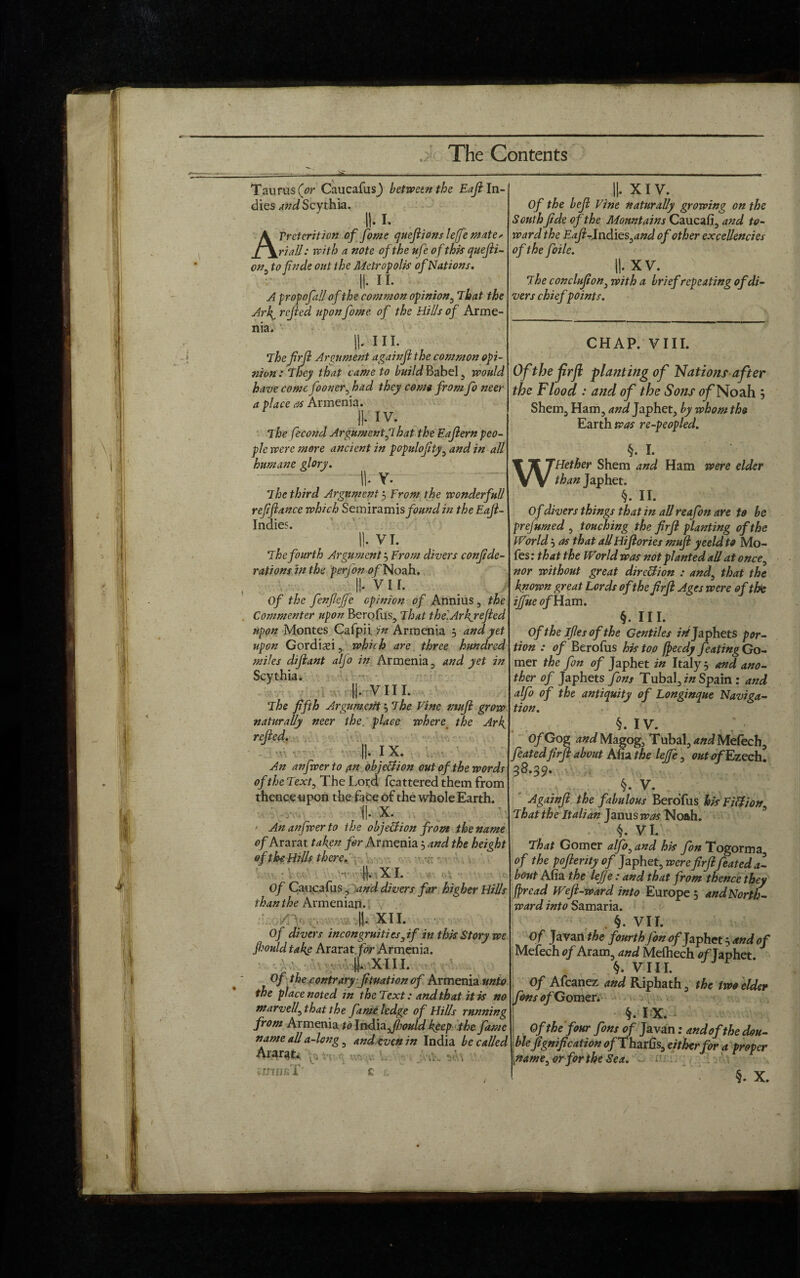 The Contents
Taurus (or Caucasus) between the East In-
dies and Scythia.
||. I.
A Preterition of some questions lesse mate-
riall: with a note of the use of this questi-
on, to finde out the Metropolis of Nations.
||. II.
A proposall of the common opinion, That the
Ark rested upon some of the Hills of Arme-
nia.
||. III.
The first Argument against the common opi-
nion: They that came to build Babel, would
have come sooner, had they come from so neer
a place as Armenia.
||. IV.
The second Argument, That the Eastern peo-
ple were more ancient in populosity, and in all
humane glory.
||. V.
The third Argument; From the wonderfull
resistance which Semiramis found in the East-
Indies.
||. VI.
The fourth Argument; From divers conside-
rations in the person of Noah.
||. VII.
Of the senslesse opinion of Annius, the
Commenter upon Berosus, That the Ark rested
upon Montes Caspii in Armenia; and yet
upon Gordiæi, which are three hundred
miles distant also in Armenia, and yet in
Scythia.
||. VIII.
The fifth Argument; The Vine must grow
naturally neer the place where the Ark
rested.
||. IX.
An answer to an objection out of the words
of the Text, The Lord scattered them from
thence upon the face of the whole Earth.
||. X.
An answer to the objection from the name
of Ararat taken for Armenia; and the height
of the Hills there.
||. XI.
Of Caucasus, and divers far higher Hills
than the Armenian.
||. XII.
Of divers incongruities, if in this Story we
should take Ararat for Armenia.
||. XIII.
Of the contrary situation of Armenia unto
the place noted in the Text: and that it is no
marvell, that the same ledge of Hills running
from Armenia to India, should keep the same
name all a-long, and even in India be called
Ararat.
||. XIV.
Of the best Vine naturally growing on the
South side of the Mountains Caucasi, and to-
ward the East-Indies, and of other excellencies
of the soile.
||. XV.
The conclusion, with a brief repeating of di-
vers chief points.
CHAP. VIII.
Of the first planting of Nations after
the Flood : and of the Sons of Noah ;
Shem, Ham, and Japhet, by whom the
Earth was re-peopled.
§. I.
WHether Shem and Ham were elder
than Japhet.
§. II.
Of divers things that in all reason are to be
presumed, touching the first planting of the
World; as that all Histories must yeeld to Mo-
ses: that the World was not planted all at once,
nor without great direction : and, that the
known great Lords of the first Ages were of the
issue of Ham.
§. III.
Of the Isles of the Gentiles in Japhets por-
tion : of Berosus his too speedy seating Go-
mer the son of Japhet in Italy; and ano-
ther of Japhets sons Tubal, in Spain : and
also of the antiquity of Longinque Naviga-
tion.
§. IV.
Of Gog and Magog, Tubal, and Mesech,
seated first about Asia the lesse, out of Ezech.
38.39.
§. V.
Against the fabulous Berosus his Fiction,
That the Italian Janus was Noah.
§. VI.
That Gomer also, and his son Togorma,
of the posterity of Japhet, were first seated a-
bout Asia the lesse : and that from thence they
spread West-ward into Europe; and North-
ward into Samaria.
§. VII.
Of Javan the fourth son of Japhet; and of
Mesech of Aram, and Meshech of Japhet.
§. VIII.
Of Ascanez and Riphath, the two elder
sons of Gomer.
§. IX.
Of the four sons of Javan : and of the dou-
ble signification of Tharsis, either for a proper
name, or for the Sea.
§. X.